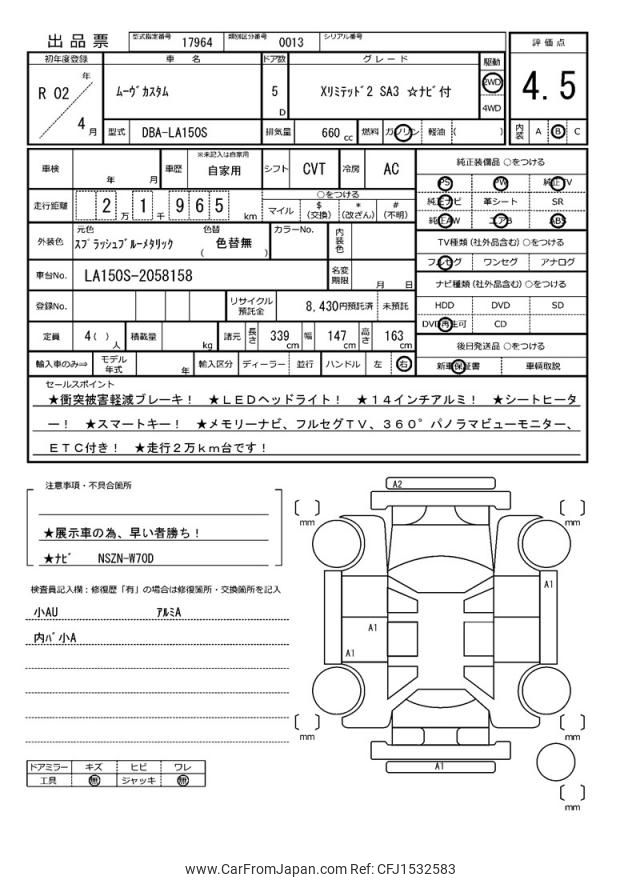 出品票
型式指定番号 17964 類別区分番号 0013 シリアル番号
評価点
4.5
内装 A B C
初年度登録 車名 ドア数 グレード 駆動
R 02 年 4 月
ﾑｰｳﾞｶｽﾀﾑ 5 D Xﾘﾐﾃｯﾄﾞ2 SA3 ☆ﾅﾋﾞ付 2WD 4WD
型式 DBA-LA150S 排気量 660 cc 燃料 ガソリン 軽油 ( )
車検 年 月 車歴 ※未記入は自家用 自家用 シフト CVT 冷房 AC
走行距離 2 万 1 千 9 6 5 km
○をつける
マイル $ (交換) * (改ざん) # (不明)
外装色 元色 ｽﾌﾟﾗｯｼｭﾌﾞﾙｰﾒﾀﾘｯｸ 色替 ( 色替無 ) カラーNo. 内装色
車台No. LA150S-2058158 名変期限 月 日
登録No. リサイクル預託金 8,430円預託済 未預託
定員 4( ) 人 積載量 kg 諸元 長さ 339 cm 幅 147 cm 高さ 163 cm
輸入車のみ⇒ モデル年式 年 輸入区分 ディーラー 並行 ハンドル 左 右
純正装備品 ○をつける
PS PW 純正TV
純正ナビ 革シート SR
純正AW エアB ABS
TV種類 (社外品含む) ○をつける
フルセグ ワンセグ アナログ
ナビ種類 (社外品含む) ○をつける
HDD DVD SD
DVD再生可 CD
後日発送品 ○をつける
新車保証書 車輌取説
セールスポイント
★衝突被害軽減ブレーキ！ ★ＬＥＤヘッドライト！ ★１４インチアルミ！ ★シートヒータ
ー！ ★スマートキー！ ★メモリーナビ、フルセグＴＶ、３６０°パノラマビューモニター、
ＥＴＣ付き！ ★走行２万ｋｍ台です！
注意事項・不具合箇所
★展示車の為、早い者勝ち！
★ﾅﾋﾞ NSZN-W70D
検査員記入欄：修復歴「有」の場合は修復箇所・交換箇所を記入
小AU ｱﾙﾐA
内ﾊﾞ小A
ドアミラー キズ ヒビ ワレ
工具 無 ジャッキ 無
A2
mm mm
A1
A1
A1
mm mm
A1
mm
www.CarFromJapan.com Ref: CFJ1532583